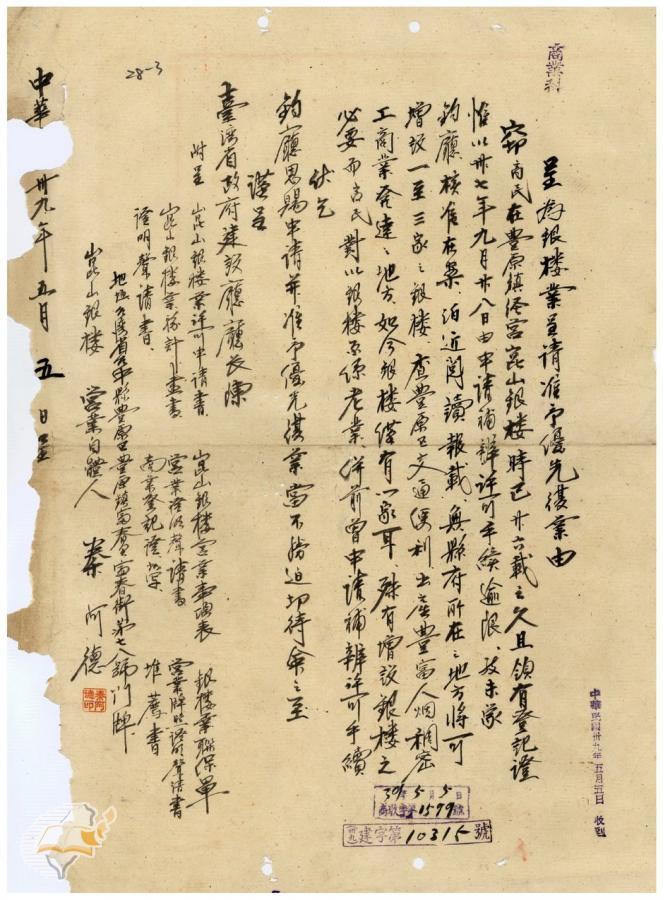 商業科
呈為銀楼業呈請准予優先復業由
竊商民在豊原鎮経営崑山銀楼時已卅六載之久且領有登記證
惟以卅七年九月廿八日由申請補辦許可手續逾限、致未蒙
鈞廳核准在案、洎近閲讀報載、無縣府所在之地方將可
增設一至三家之銀楼、查豊原區交通便利出產豊富人烟稠密
工商業発達之地方、如今銀楼僅有一家耳、殊有增設銀楼之
必要而商民對以銀楼系係老業、併前曾申請補辦許可手續
伏乞
鈞廳恩賜申請并准予優先復業當不勝迫切待命之至
謹呈
臺湾省政府建設廳廳長陳
附呈 崑山銀楼業許可申請書、 崑山銀楼営業事項表 銀楼業聯保單
崑山銀楼業務計劃書 営業證明聲請書 営業牌照證明聲請書
證明聲請書、 商業登記證 推薦書
地址台湾省台中縣豊原區豊原鎮富春里富春街第七八號門牌
崑山銀楼 営業自體人 秦阿德
中華 卅九年五月五日呈
28-3
中華民國卅九年五月五日 收到
39年5月5日
商收字第1579號
卅九建字第10315號
秦阿德印